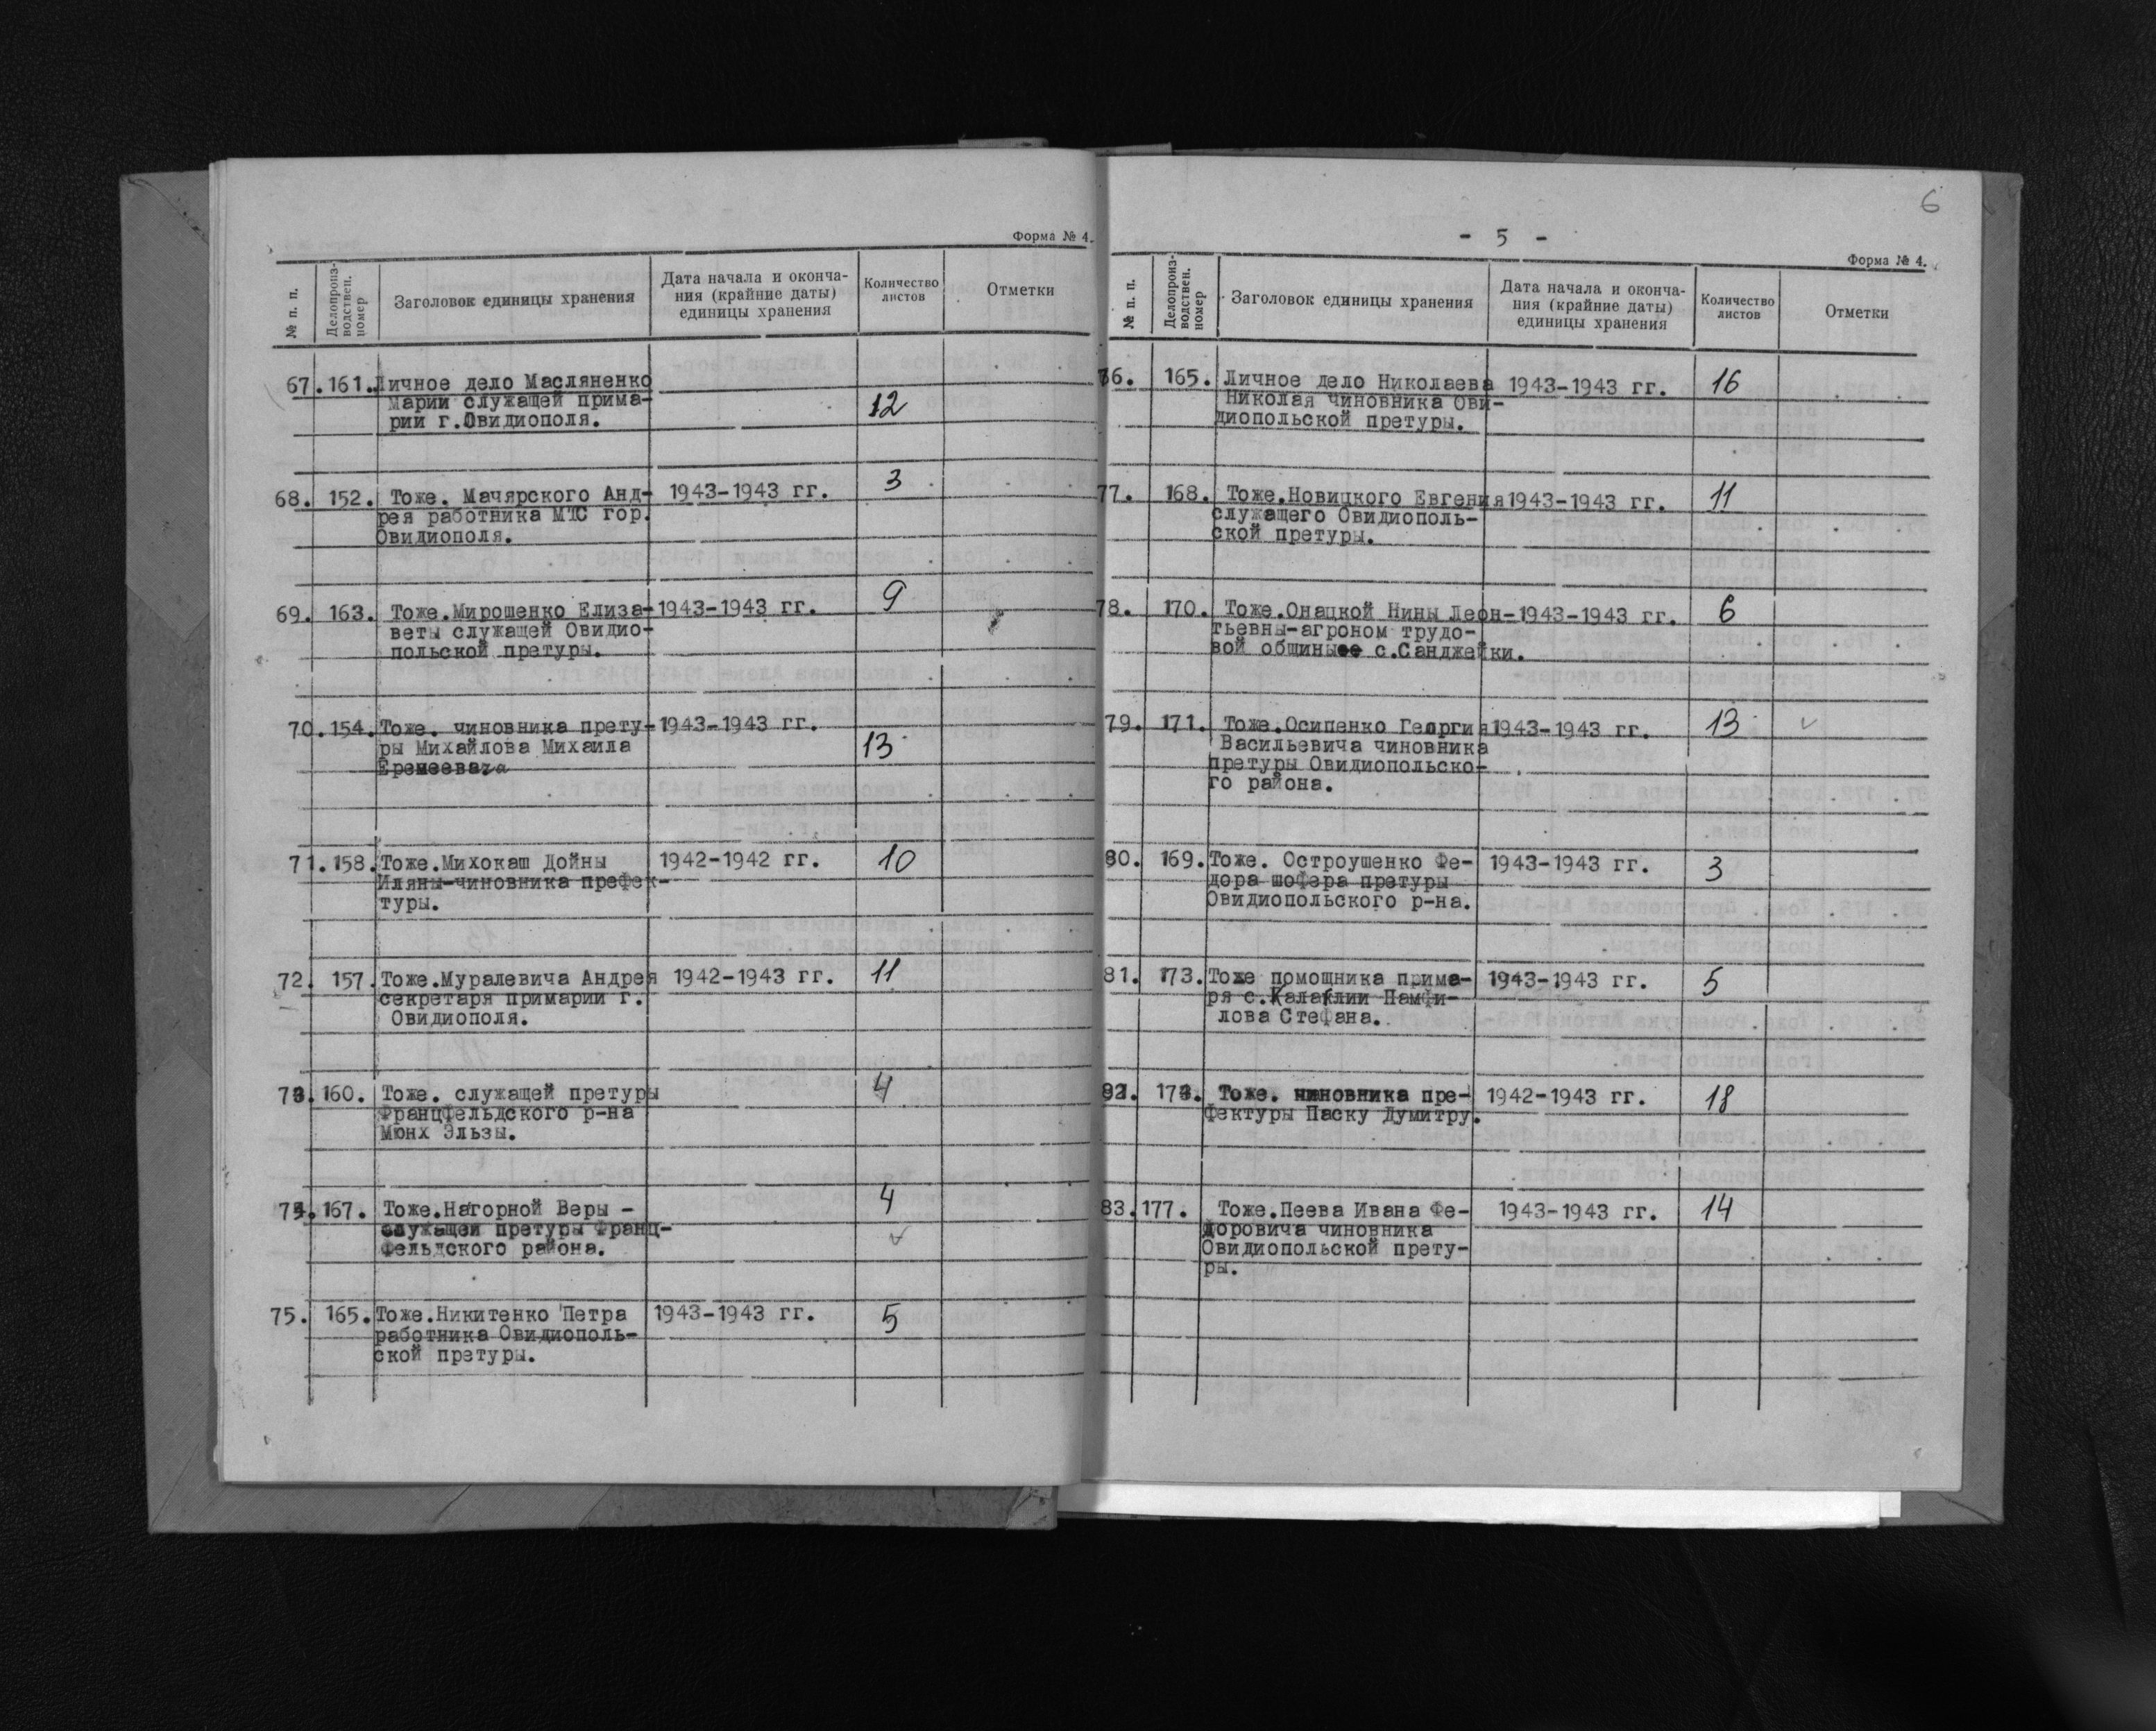 Форма № 4.
№ п. п.
Делопроиз-
водствен.
номер
Заголовок единицы хранения
Дата начала и оконча-
ния (крайние даты)
единицы хранения
Количество
листов
Отметки
67. 161. Личное дело Масляненко
Марии служащей прима- 12
рии г.Овидиополя.
68. 152. Тоже. Мачярского Анд- 1943-1943 гг. 3
рея работника МТС гор.
Овидиополя.
69. 163. Тоже.Мирошенко Елиза- 1943-1943 гг. 9
веты служащей Овидио-
польской претуры.
70. 154. Тоже. чиновника прету- 1943-1943 гг.
ры Михайлова Михаила 13
71. 158. Тоже.Михокаш Дойны 1942-1942 гг. 10
Иляны-чиновника префек-
туры.
72. 157. Тоже.Муралевича Андрея 1942-1943 гг. 11
секретаря примарии г.
Овидиополя.
73. 160. Тоже. служащей претуры 4
Францфельдского р-на
Мюнх Эльзы.
74. 167. Тоже.Нагорной Веры - 4
служащей претуры Франц-
фельдского района.
75. 165. Тоже.Никитенко Петра 1943-1943 гг. 5
работника Овидиополь-
ской претуры.
6
- 5 -
Форма № 4.
№ п. п.
Делопроиз-
водствен.
номер
Заголовок единицы хранения
Дата начала и оконча-
ния (крайние даты)
единицы хранения
Количество
листов
Отметки
76. 165. Личное дело Николаева 1943-1943 гг. 16
Николая чиновника Ови-
диопольской претуры.
77. 168. Тоже.Новицкого Евгения 1943-1943 гг. 11
служащего Овидиополь-
ской претуры.
78. 170. Тоже.Онацкой Нины Леон- 1943-1943 гг. 6
тьевны-агроном трудо-
вой общины с.Санджейки.
79. 171. Тоже.Осипенко Георгия 1943-1943 гг. 13
Васильевича чиновника
претуры Овидиопольско-
го района.
80. 169. Тоже. Остроушенко Фе- 1943-1943 гг. 3
дора шофера претуры
Овидиопольского р-на.
81. 173. Тоже помощника прима- 1943-1943 гг. 5
ря с.Калаклии Памфи-
лова Стефана.
82. Тоже. чиновника пре- 1942-1943 гг. 18
фектуры Паску Думитру.
83. 177. Тоже.Пеева Ивана Фе- 1943-1943 гг. 14
доровича чиновника
Овидиопольской прету-
ры.